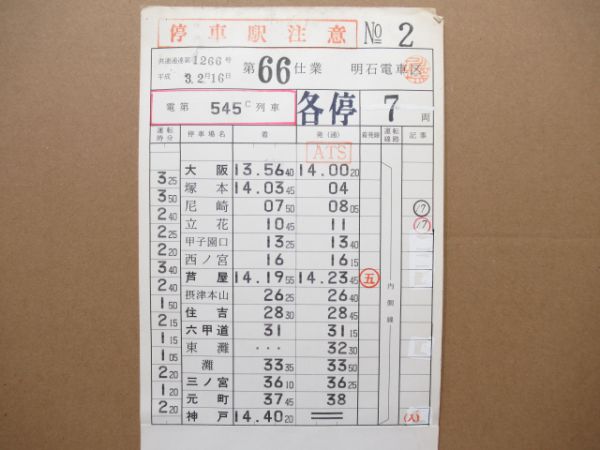 停車駅注意 No 2
共達通達第1266号
平成 3.2月16日
第66仕業 明石電車区
電第 545C列車 各停 7両
運転時分 停車場名 着 発(通) 着発線 運転線路 記事
ATS
大阪 13.56 40 14.00 20
3 25
塚本 14.03 45 04
3 50
尼崎 07 50 08 05 17
2 40
立花 10 45 11 17
2 25
甲子園口 13 25 13 40
2 20
西ノ宮 16 16 15
3 40
芦屋 14.19 55 14.23 45 五
2 40
摂津本山 26 25 26 40
内側線
1 50
住吉 28 30 28 45
2 15
六甲道 31 31 15
1 15
東灘 ・・・ 32 30
1 05
灘 33 35 33 50
2 20
三ノ宮 36 10 36 25
1 20
元町 37 45 38
2 20
神戸 14.40 20 (入)